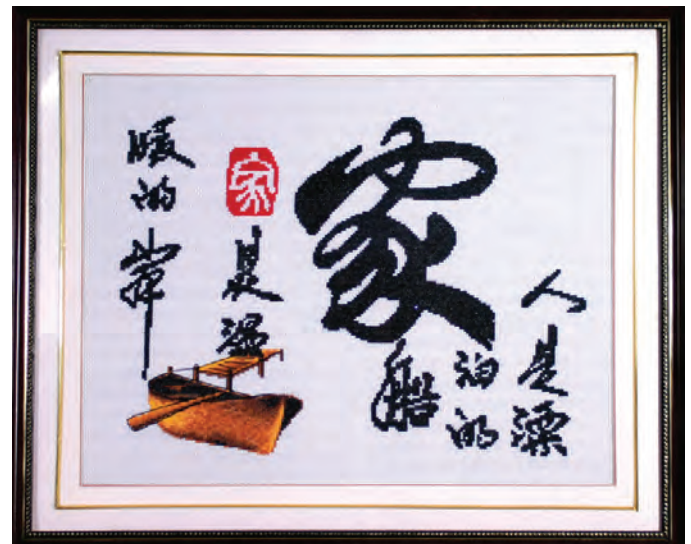 家
人是漂
泊的
船
家是温
暖的岸